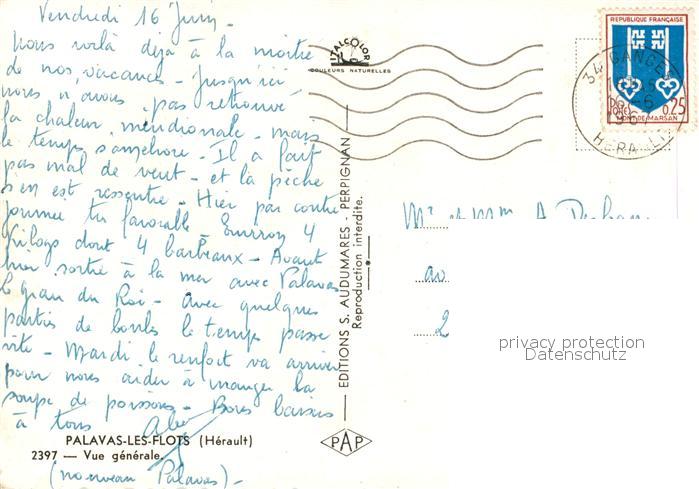 Vendredi 16 Juin -
Nous voilà déjà à la moitié
de nos vacances - Jusqu'ici
nous n'avons pas retrouvé
la chaleur méridionale - mais
le temps s'améliore. Il a fait
pas mal de vent - et la pêche
s'en est ressentie - Hier par contre
journée très favorable - Environ 4
kilogs dont 4 barbeaux - Avant
hier sortie à la mer avec Palavas
le grau du Roi - avec quelques
parties de boules le temps passe
vite - Mardi le renfort va arriver
pour nous aider à manger la
soupe de poissons - Bons baisers
à tous
PALAVAS-LES-FLOTS (Hérault)
2397 — Vue générale.
(nouveau Palavas) -
ITALCOLOR
COULEURS NATURELLES
EDITIONS S. AUDUMARES - PERPIGNAN
Reproduction interdite.
PAP
REPUBLIQUE FRANÇAISE
POSTES
0,25
MONT-DE-MARSAN
34 GANGES
HERAULT
Mr et Mme A.
av
2
privacy protection
Datenschutz